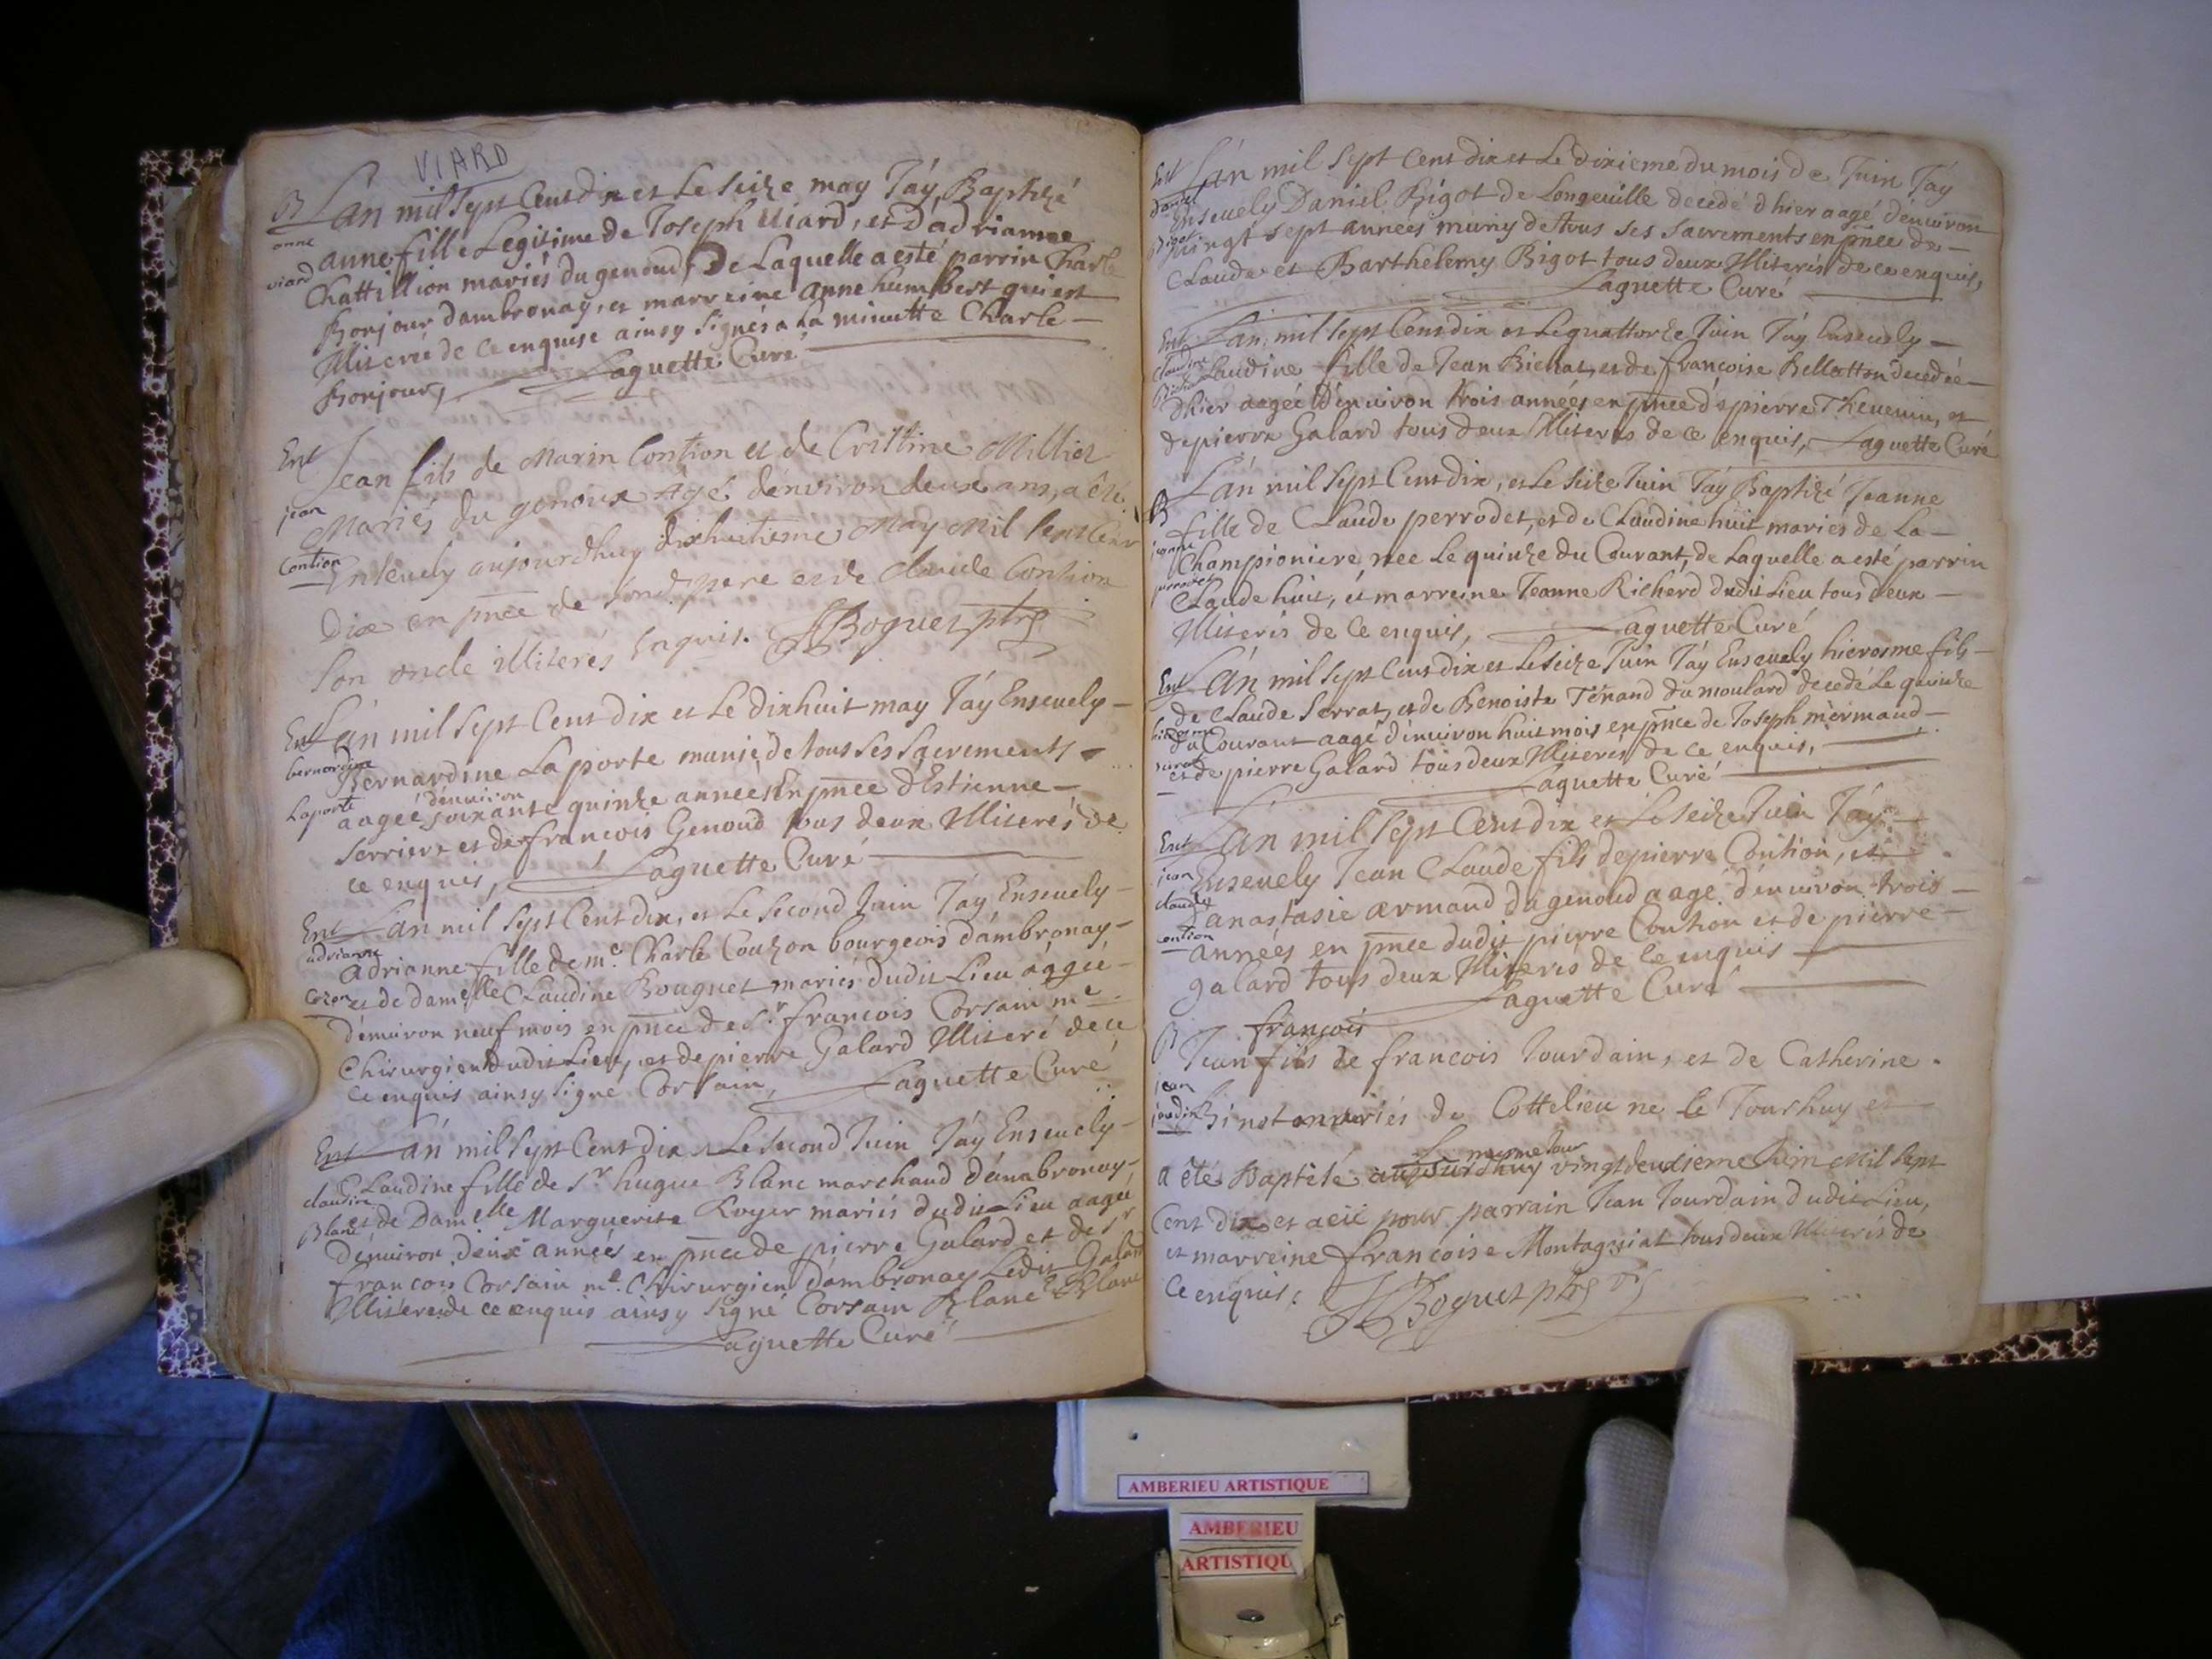 VIARD
B L'an mil sept Cent dix et Le seize may J'ay Baptizé
anne viard
anne fille Legitime de Joseph Viard, et D'adrianne
Chattillion mariés du genoud, De Laquelle a esté parrin Charle
Bonjour dambronay, et marreine anne humbert qui est
Illiterée de ce enquise ainsy signés a La minutte Charle
Bonjour, Laguette Curé
Ent Jean fils de Marin Contion et de Cristine Milliet
jean Contion
Mariés du genoux Agé d'environ deux ans, a été
Ensevely aujourdhuy dixhuitieme May Mil sept Cent
Dix en pnce de sond. pere et de Claude Contion
son oncle illiterés enquis. Boguet ptre
Ent L'an mil sept Cent dix et Le dixhuit may J'ay Ensevely
bernardine Laporte
Bernardine Laporte munie de tous ses sacrements
d'environ
aagée soixante quinze années En pnce d'Estienne
serriere et de francois Genoud tous deux Illiterés de
ce enquis, Laguette Curé
Ent L'an mil sept Cent dix, et Le second Juin J'ay Ensevely
adrianne Cozon
Adrianne fille de me. Charle Couzon bourgeois d'ambronay
et de damelle Claudine Bouguet mariés dudit Lieu aagée
d'environ neuf mois en pnce de Sr. francois Corsain me
Chirurgien dudit Lieu, et de pierre Galard Illiteré de ce
Ce enquis ainsy signé Corsain, Laguette Curé
Ent L'an mil sept Cent dix et Le second Juin J'ay Ensevely
claudine Blanc
Claudine fille de Sr hugue Blanc marchand d'ambronay
et de Damelle Marguerite Royer mariés dudit Lieu aagée
d'environ deux années en pnce de pierre Galard et de Sr
francois Corsain me. Chirurgien d'ambronay Ledit Galard
Illiteré de ce enquis ainsy signé Corsain Blanc Blanc
Laguette Curé
Ent L'an mil sept Cent dix et Le dixieme du mois de Juin J'ay
daniel Bigot
Ensevely Daniel Bigot de Longeville decedé d'hier aagé d'environ
vingt sept années muny de tous ses sacrements en pnce de
Claude et Barthelemy Bigot tous deux Illiterés de ce enquis,
Laguette Curé
Ent L'an mil sept Cent dix et Le quattorze Juin J'ay Ensevely
claudine
Claudine fille de Jean Bichat, et de francoise Bellatton decedée
d'hier aagée d'environ trois années en pnce de pierre Thevenin, et
de pierre Galard tous deux Illiterés de ce enquis, Laguette Curé
B L'an mil sept Cent dix, et Le seize Juin J'ay Baptizé Jeanne
jeanne perrodet
fille de Claude perrodet, et de Claudine huit mariés de La
Championiere née Le quinze du Courant, de Laquelle a esté parrin
Claude huit, et marreine Jeanne Richerd dudit Lieu tous deux
Illiterés de Ce enquis, Laguette Curé
Ent L'an mil sept Cent dix et Le seize Juin J'ay Ensevely hierosme fils
de Claude Serrat, et de Benoiste Ténand du moulard decedé Le quinze
hierosme
du Courant aagé d'environ huit mois en pnce de Joseph mermand
et de pierre Galard tous deux Illiteres de ce enquis,
Laguette Curé
Ent L'an mil sept Cent dix et Le seize Juin J'ay
jean claude contion
Ensevely Jean Claude fils de pierre Contion, et
anastasie armand du genoud aagé d'environ trois
années en pnce dudit pierre Contion et de pierre
galard tous deux Illiterés de Ce enquis
Laguette Curé
B francois
Jean fils de francois Jourdain, et de Catherine
jean jourdin
Binot mariés de Cottelieu ne le Jourhuy et
Le mesme Jour
a été Baptisé aujourdhuy vingtdeuxieme Juin Mil Sept
Cent dix et a eü pour parrain Jean Jourdain dudit Lieu,
et marreine francoise Montagniat tous deux Illiterés de
Ce enquis. Boguet ptre
AMBERIEU ARTISTIQUE
AMBERIEU
ARTISTIQU